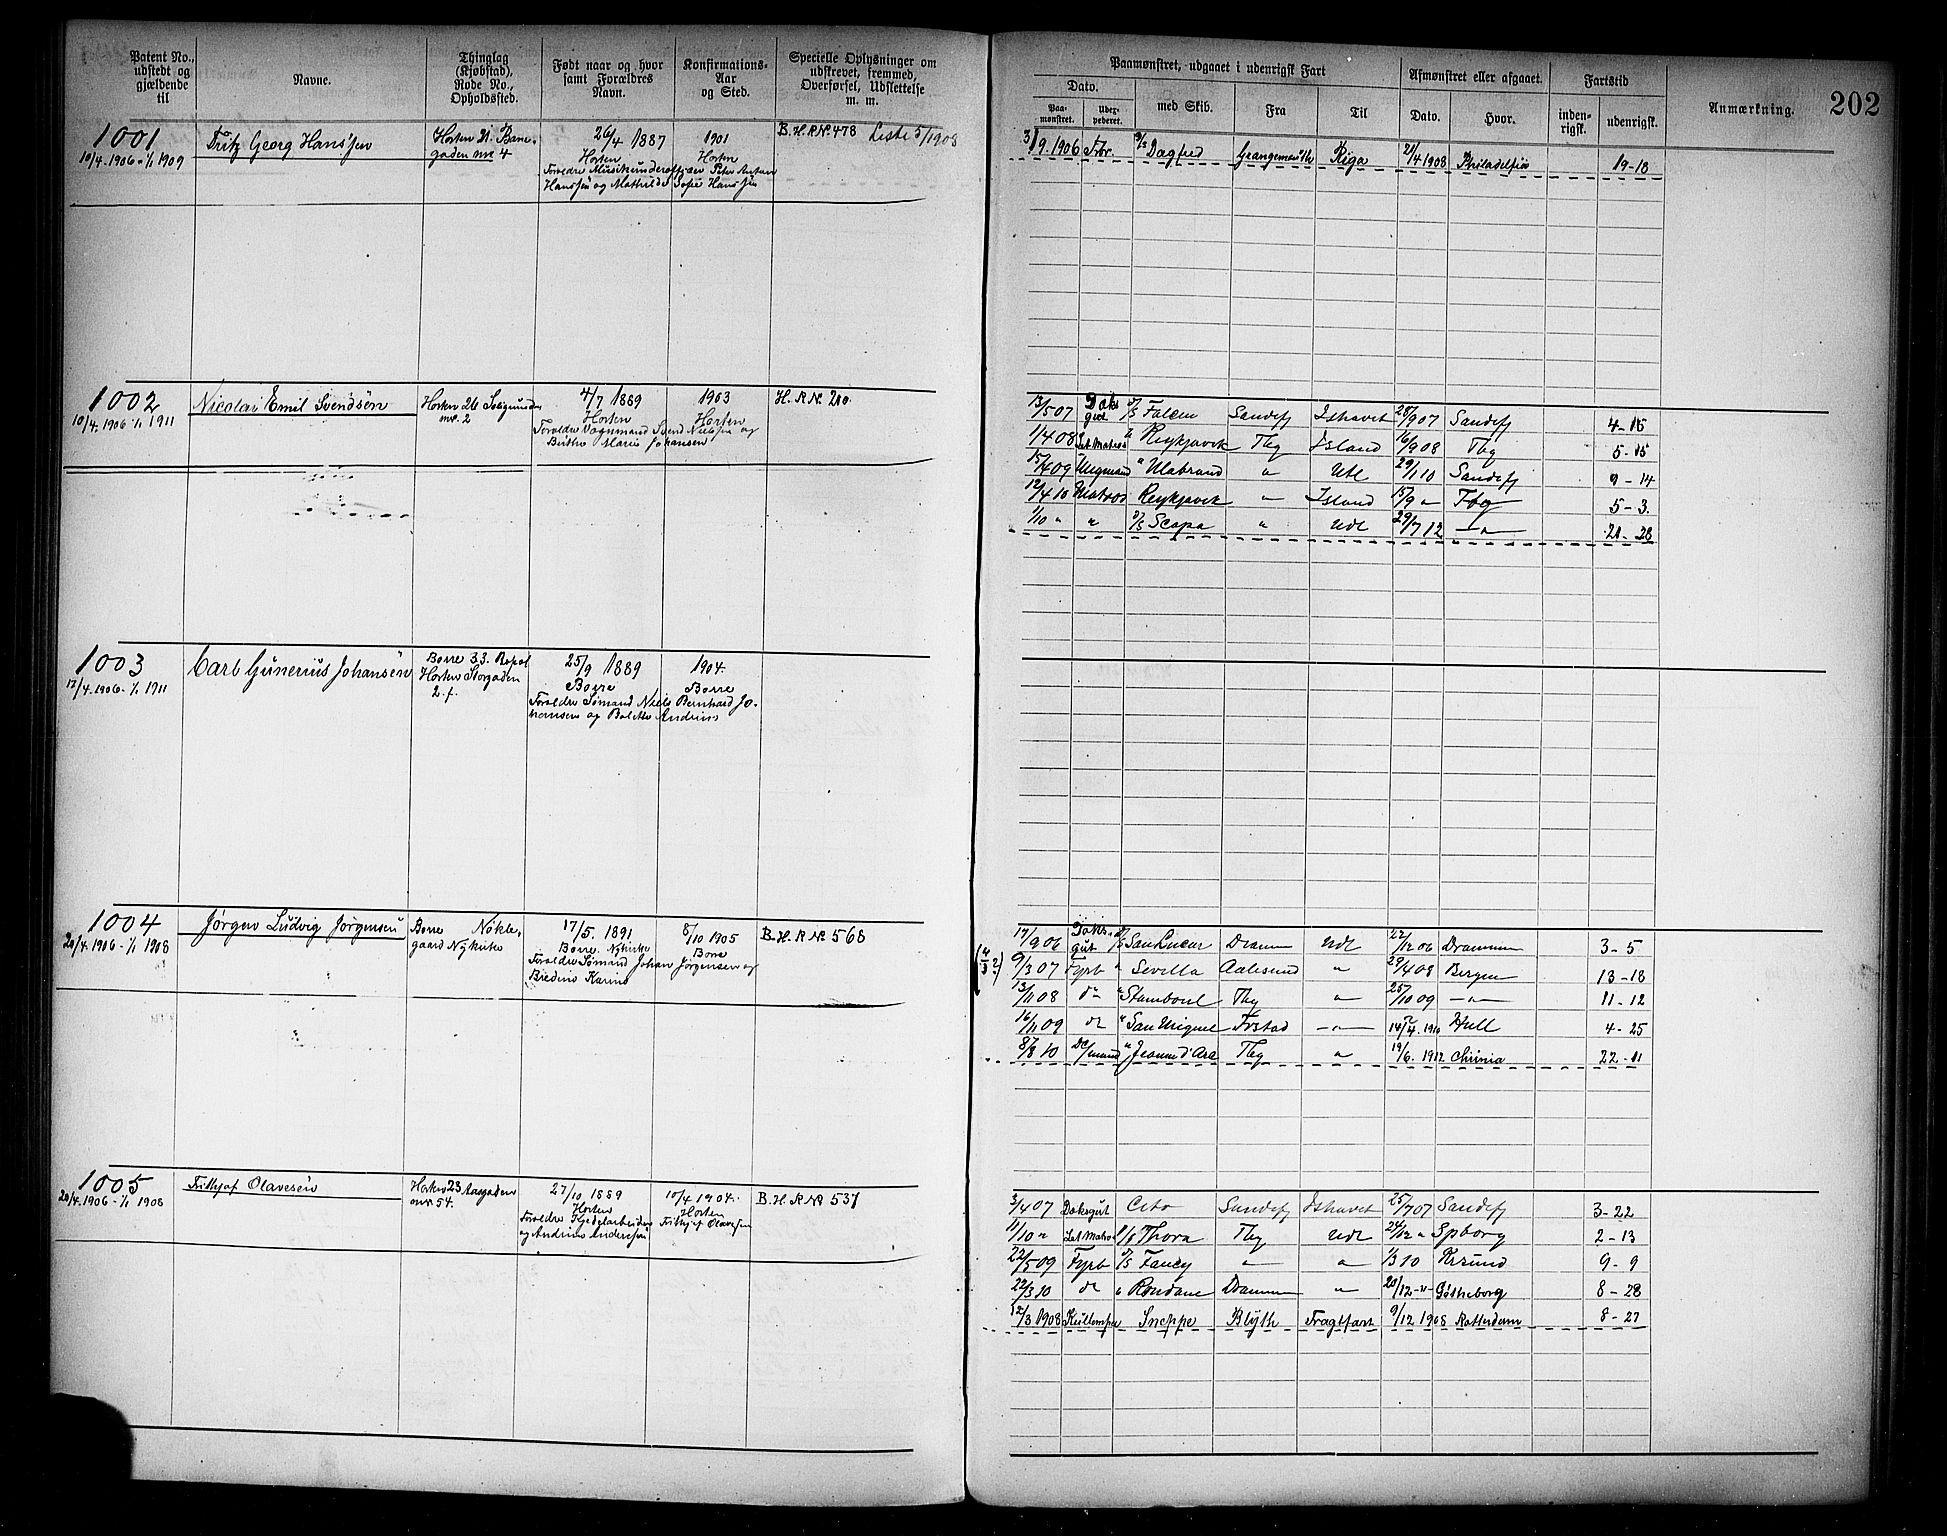 Patent No., udstedt og gjældende til
Navne.
Thinglag (Kjøbstad), Rode No., Opholdssted.
Født naar og hvor samt Forældres Navn.
Konfirmations-Aar og Sted.
Specielle Oplysninger om udskrevet, fremmed, Overførsel, Udslettelse m. m.
Paamønstret, udgaaet i udenrigsk Fart
Afmønstret eller afgaaet.
Fartstid
Anmærkning.
202
Dato.
Paa-mønstret.
med Skib.
Fra
Til
Dato.
Hvor.
inden-rigsk.
udenrigsk.
1001
10/4.1906-1/1 1909
Fritz Georg Hanssen
Horten 21. Bane-
gaden no 4
26/4 1887
Horten
Forældre Musikunderofficer Peter Anton
Hanssen og Mathilde Sofie Hanssen
1901
Horten
B.H.R.No. 478 Liste 5/1908
3/9.1906 Fbr. D/S Dagfred Grangemouth Riga 21/4 1908 Philadelfia 19-18
1002
10/4.1906 1/1 1911
Nicolai Emil Svendsen
Horten 26
no. 2
4/7 1889
Horten
Forældre Vognmand Svend Nielsen og
Marie Johansen
1903
Horten
H. R No. 210.
13/5 07 Dæksgut D/S Falcon Sandefj Ishavet 28/9 07 Sandefj 4-15
1/4 08 Let Matros " Reykjavik Tbg Island 16/9 08 Tbg 5-15
15/4 09 Ungmand " Ulabrand " Udl 29/1 10 Sandefj 9-14
12/4 10 Matros Reykjavik " Island 15/9 " Tbg 5-3.
1/10 " " D/S Scapa " Udl 29/7 12 — " — 21-28
1003
17/4.1906-1/1 1911
Carl Gunerius Johansen
Borre 33. Repol
Horten Storgaden
2. f.
25/9 1889
Borre
Forældre Sømand Niels Bernhard Jo-
hansen og Bolette Andrine
1904.
Borre
1004
20/4.1906-1/1 1908
Jørgen Ludvig Jørgensen
Borre Nøkle-
gaard Nykirke
17/5. 1891
Borre. Nykirke
Forældre Sømand Johan Jørgensen og
Bredine Karine
8/10 1905
Borre
B.H.R No 568
17/9 06 Dæksgut D/S San Lucar Dramm Udl 22/12 06 Drammen 3-5
9/3 07 Fyrb " Sevilla Aalesund " 29/4 08 Bergen 13-18
13/11 08 do " Stamboul Tbg " 25/10 09 — " — 11-12
16/11 09 do " San Miguel Frstad — " — 14/4. 1910 Hull 4-25
8/8 10 " Jeanne d'Arc Tbg " 19/6. 1912 Chrinia 22-11
1005
20/4.1906-1/1 1908
Frithjof Olavesen
Horten 23 Aasgaden
no. 54.
27/10 1889
Horten
Forældre Kjedelarbeider
og Andrine Anderssen
10/4 1904.
Horten
Frithjof Olavesen
B.H.R No 537
3/4 07 Dæksgut Cito Sandefj Ishavet 25/7 07 Sandefj 3-22
11/10 " Let Matros S/S Thora Tbg Udl 24/12 " Spborg 2-13
22/5 09 Fyrb D/S Fancy — " — " 1/3 10 Krsund 9-9
22/3 10 do " Rondane Dramm " 20/12 - " - Gøtheborg 8-28
12/3 1908 Kullemper Sneppe Blyth Fragtfart 9/12 1908 Rotterdam 8-27